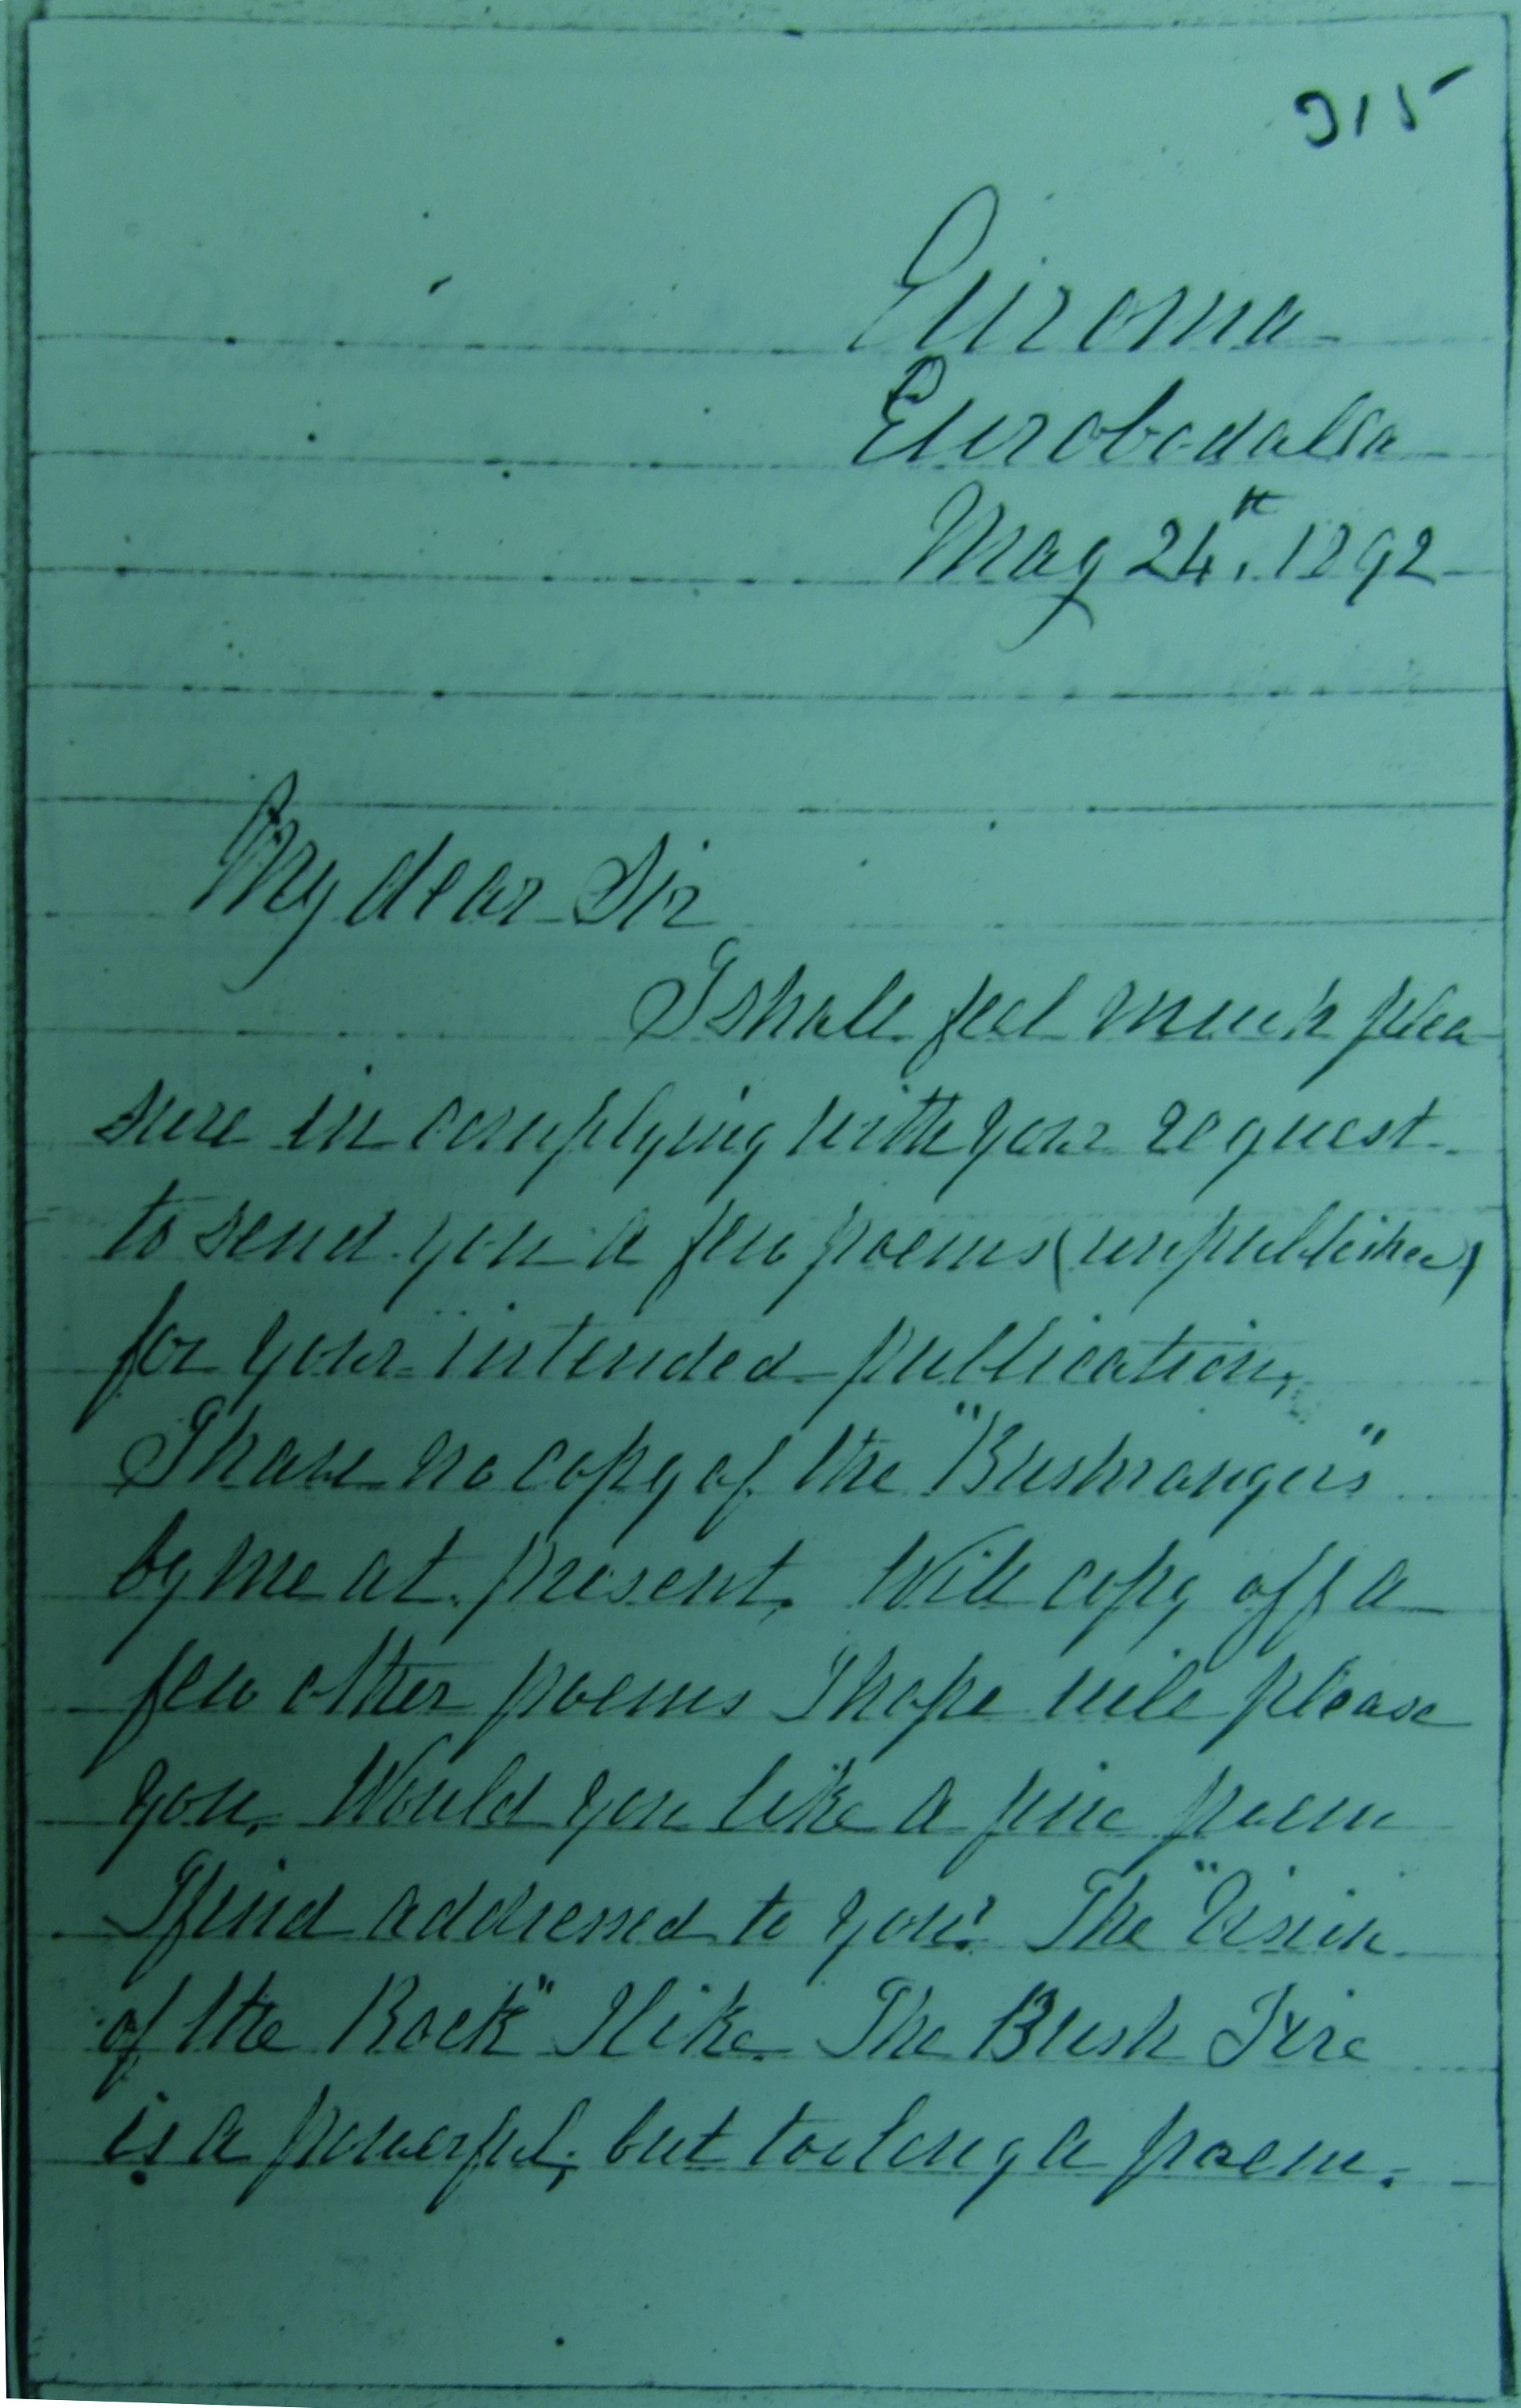 315
Euroma
Eurobodalla
May 24th. 1892
My dear Sir
I shall feel much plea
sure in complying with your request
to send you a few poems (unpublished)
for your intended publication.
I have no copy of the "Bushrangers"
by me at present. Will copy off a
few other poems I hope will please
you. Would you like a fine poem
I find addressed to you? The "Vision
of the Rock" I like. The Bush Fire
is a powerful, but too long a poem.